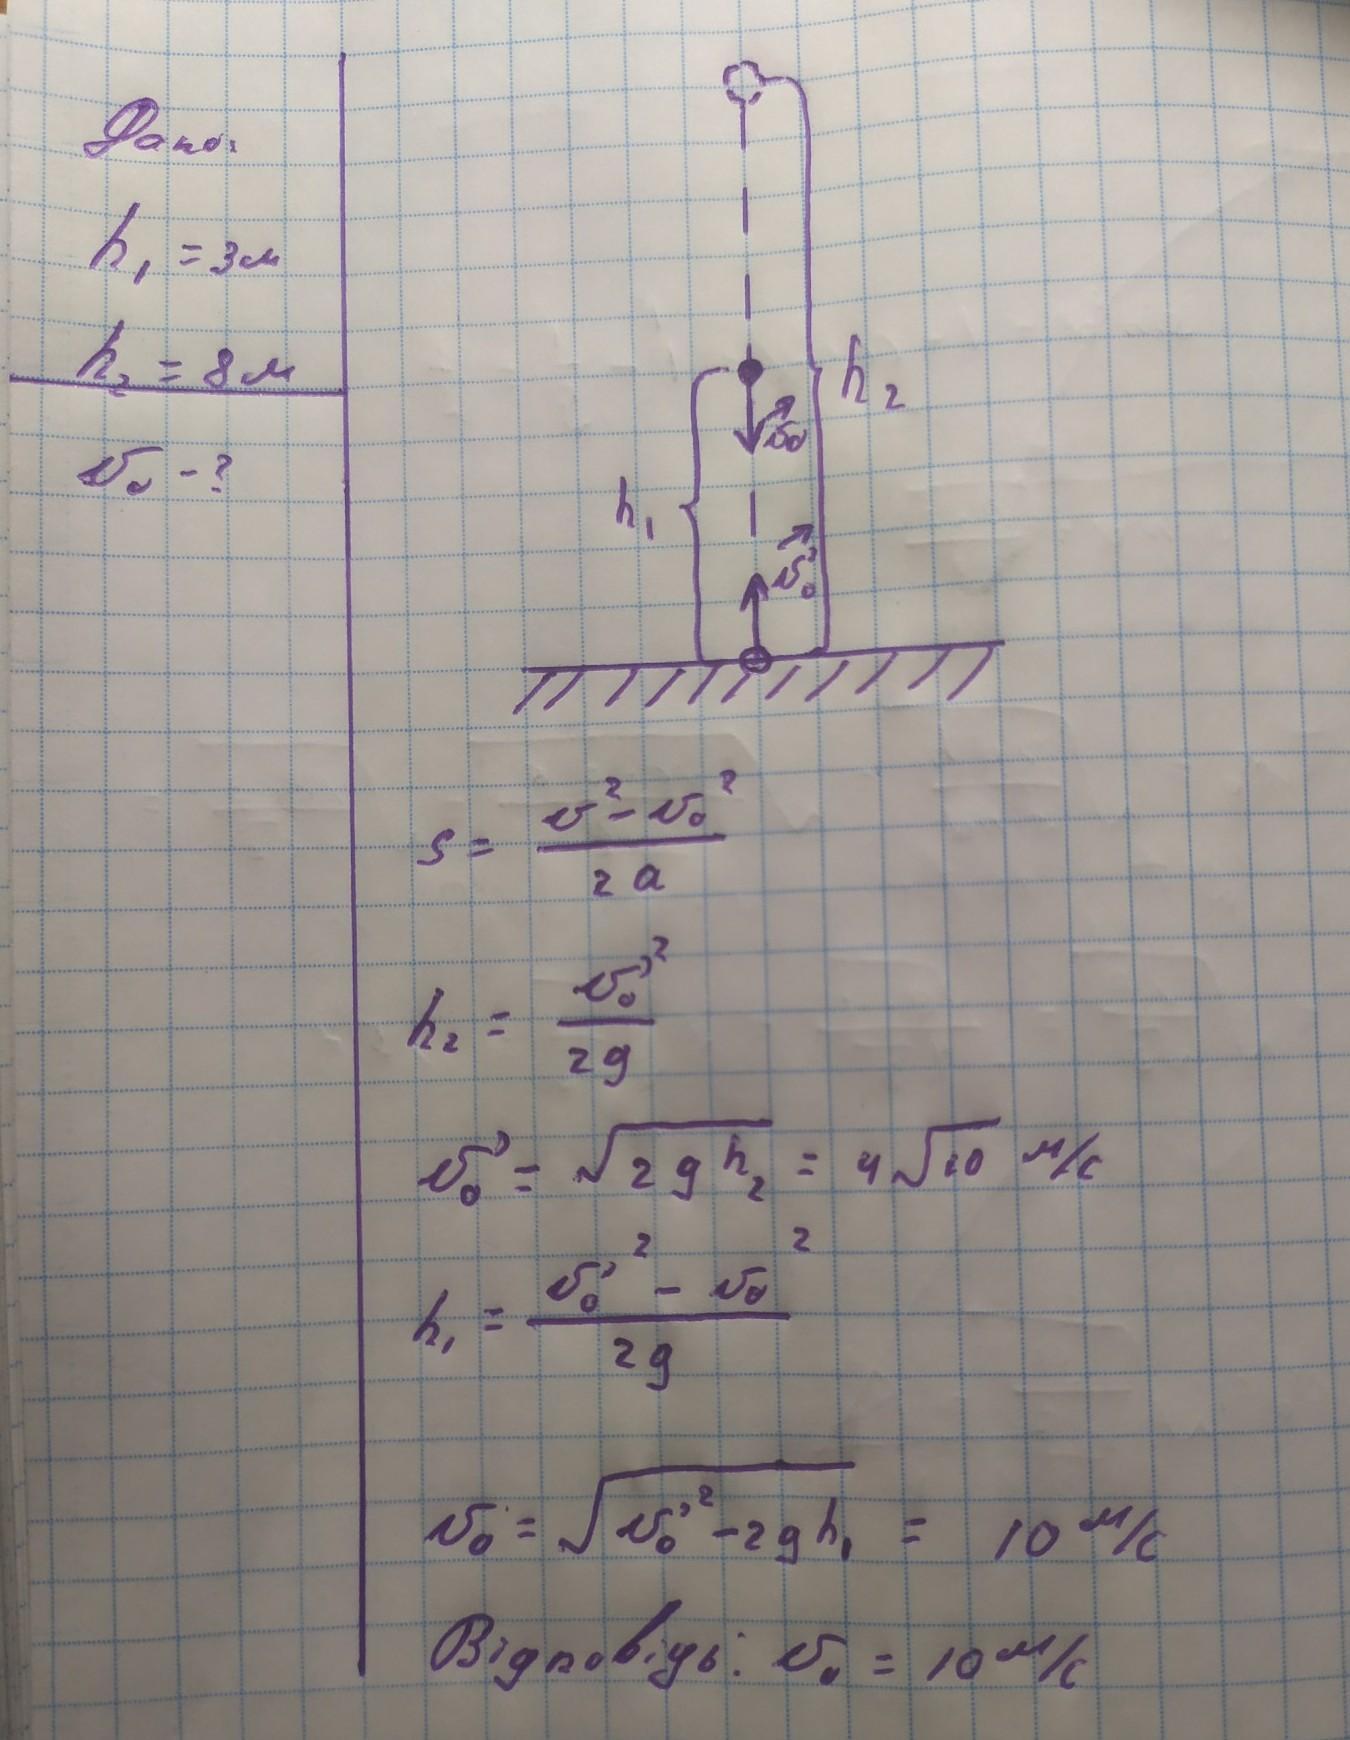 Дано:
h₁ = 3м
h₂ = 8м
v₀ - ?
h₂
v₀
h₁
v₀'
s = (v² - v₀²) / 2a
h₂ = v₀'² / 2g
v₀' = √(2gh₂) = 4√10 м/с
h₁ = (v₀'² - v₀²) / 2g
v₀ = √(v₀'² - 2gh₁) = 10 м/с
Відповідь: v₀ = 10 м/с